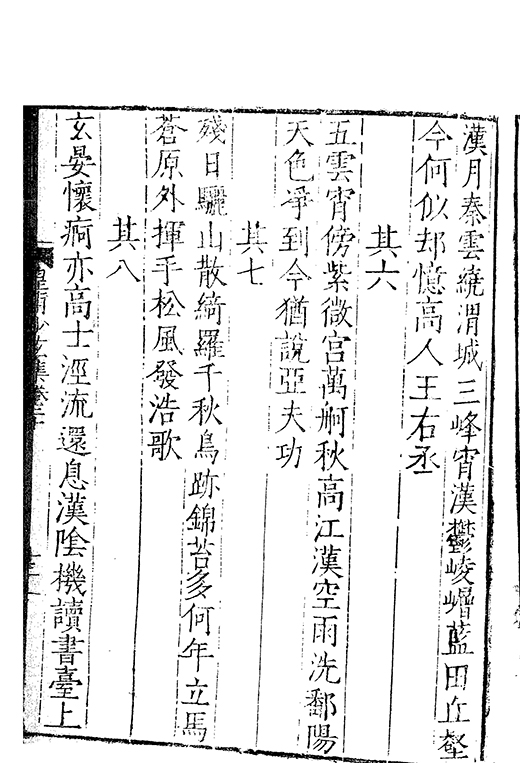 漢月秦雲繞渭城三峰宵漢鬱崚嶒藍田丘壑
今何似却憶高人王右丞
其六
五雲宵傍紫微宮萬舸秋高江漢空雨洗鄱陽
天色凈到今猶說亞夫功
其七
殘日驪山散綺羅千秋鳥跡錦苔多何年立馬
蒼原外揮手松風發浩歌
其八
玄晏懷痾亦高士涇流還息漢陰機讀書臺上